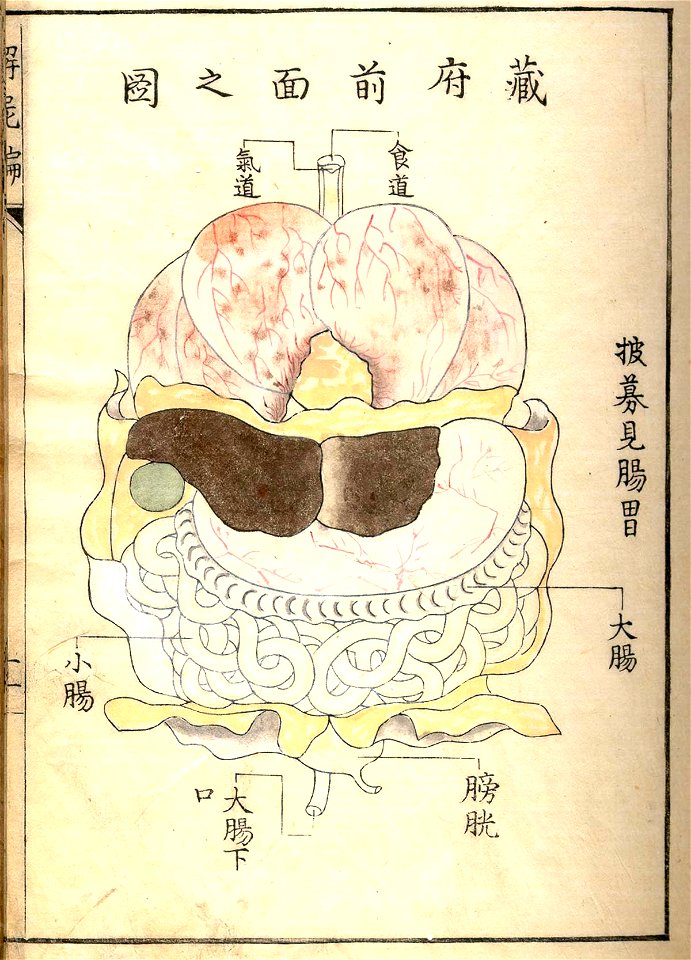 藏府前面之圖
食道
氣道
披募見腸胃
大腸
小腸
膀胱
大腸下
口
解屍編